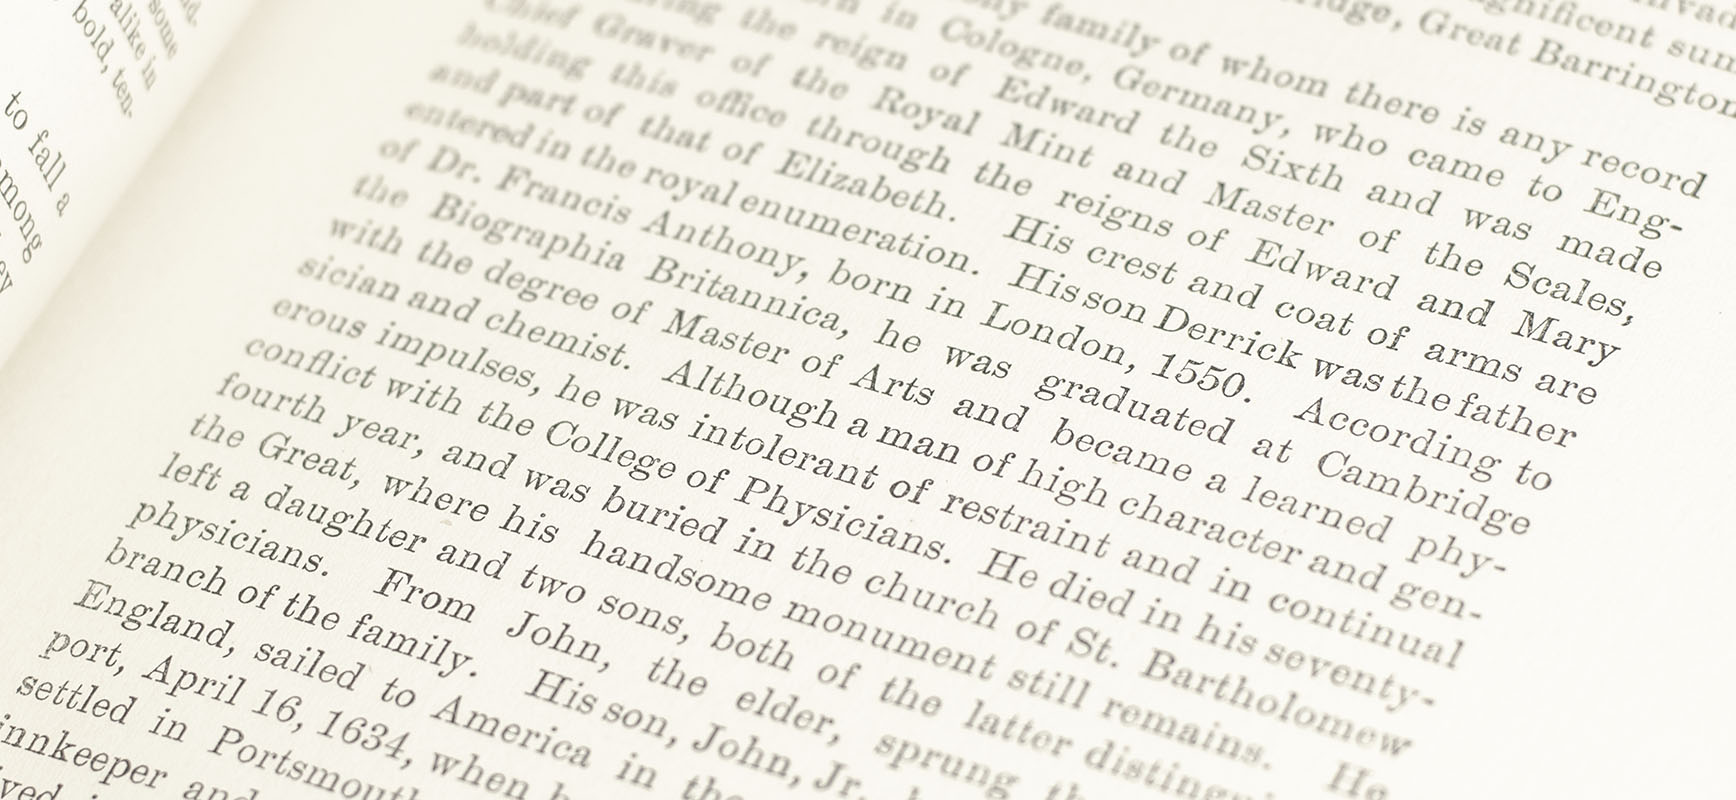 nd.
some
alike in
bold, ten-
to fall a
mong
ey
magnificent sum
idge, Great Barrington
family of whom there is any record
in Cologne, Germany, who came to Eng-
the reign of Edward the Sixth and was made
Chief Graver of the Royal Mint and Master of the Scales,
holding this office through the reigns of Edward and Mary
and part of that of Elizabeth. His crest and coat of arms are
entered in the royal enumeration. His son Derrick was the father
of Dr. Francis Anthony, born in London, 1550. According to
the Biographia Britannica, he was graduated at Cambridge
with the degree of Master of Arts and became a learned phy-
sician and chemist. Although a man of high character and gen-
erous impulses, he was intolerant of restraint and in continual
conflict with the College of Physicians. He died in his seventy-
fourth year, and was buried in the church of St. Bartholomew
the Great, where his handsome monument still remains. He
left a daughter and two sons, both of the latter distingui
physicians. From John, the elder, sprung th
branch of the family. His son, John, Jr.
England, sailed to America in the
port, April 16, 1634, when
settled in Portsmouth
innkeeper and